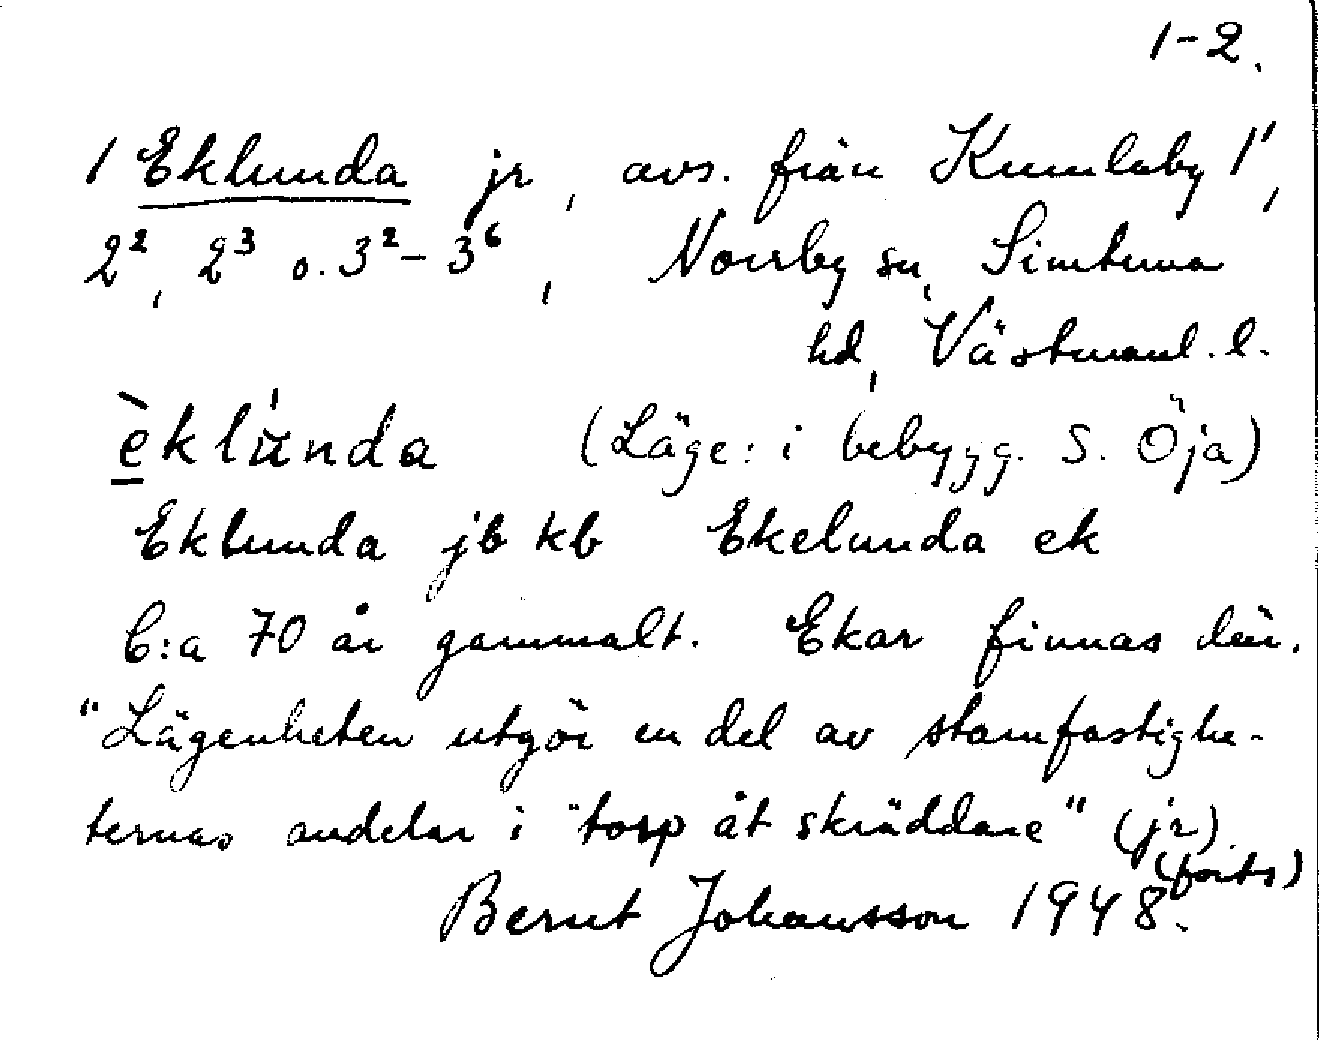 1-2.
1 Eklunda jr, avs. från Kumlaby 1¹,
2², 2³ o. 3²-3⁶, Norrby sn, Simtuna
hd, Västmanl. l.
èklu̍nda (Läge: i bebygg. S. Öja)
Eklunda jb kb Ekelunda ek
C:a 70 år gammalt. Ekar finnas där.
"Lägenheten utgör en del av stamfastighe-
ternas andelar i "torp åt skräddare" (jr).
(forts)
Bernt Johansson 1948.